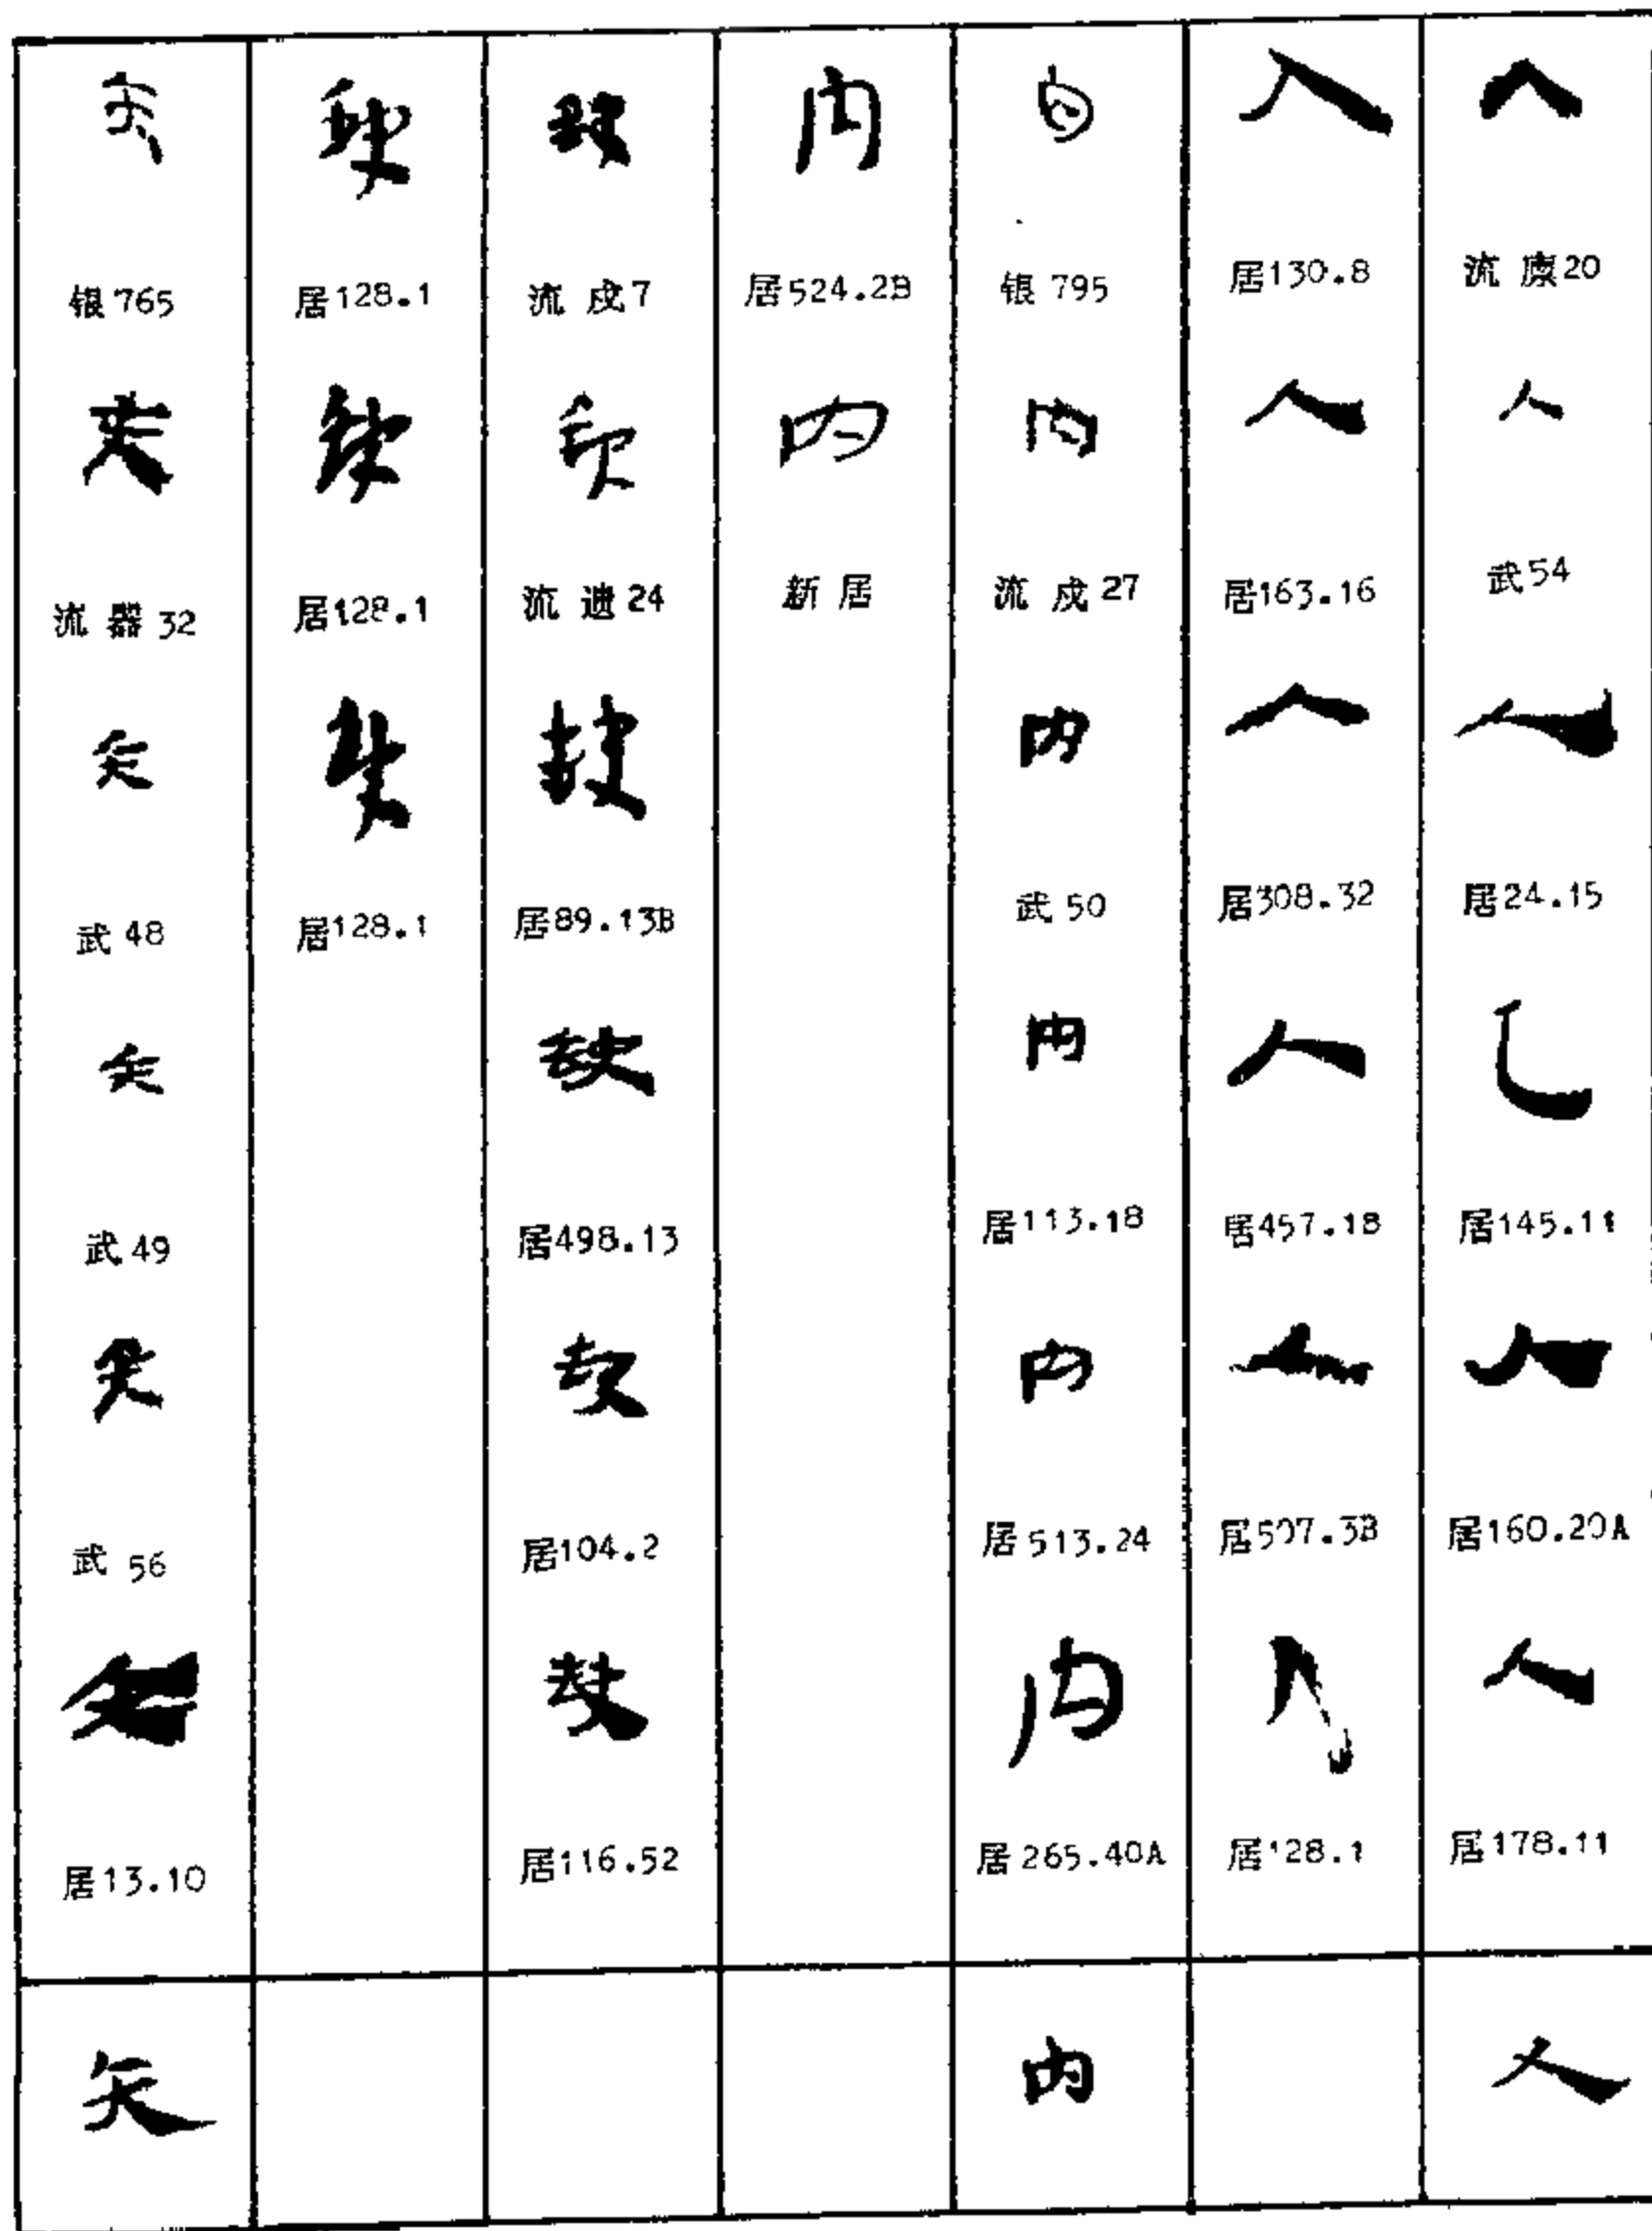 入
流 廪20
入
武54
入
居24.15
居145.11
入
居160.20A
入
居178.11
入
入
居130.8
入
居163.16
入
居308.32
入
居457.18
入
居507.3B
入
居128.1
内
银 795
内
流 戍 27
内
武 50
内
居113.18
内
居513.24
内
居265.40A
内
内
居524.2B
内
新 居
流 戍7
流 遗24
居89.13B
缺
居498.13
居104.2
居116.52
居128.1
居128.1
居128.1
银765
流 器 32
矢
武 48
矢
武 49
矢
武 56
居13.10
矢